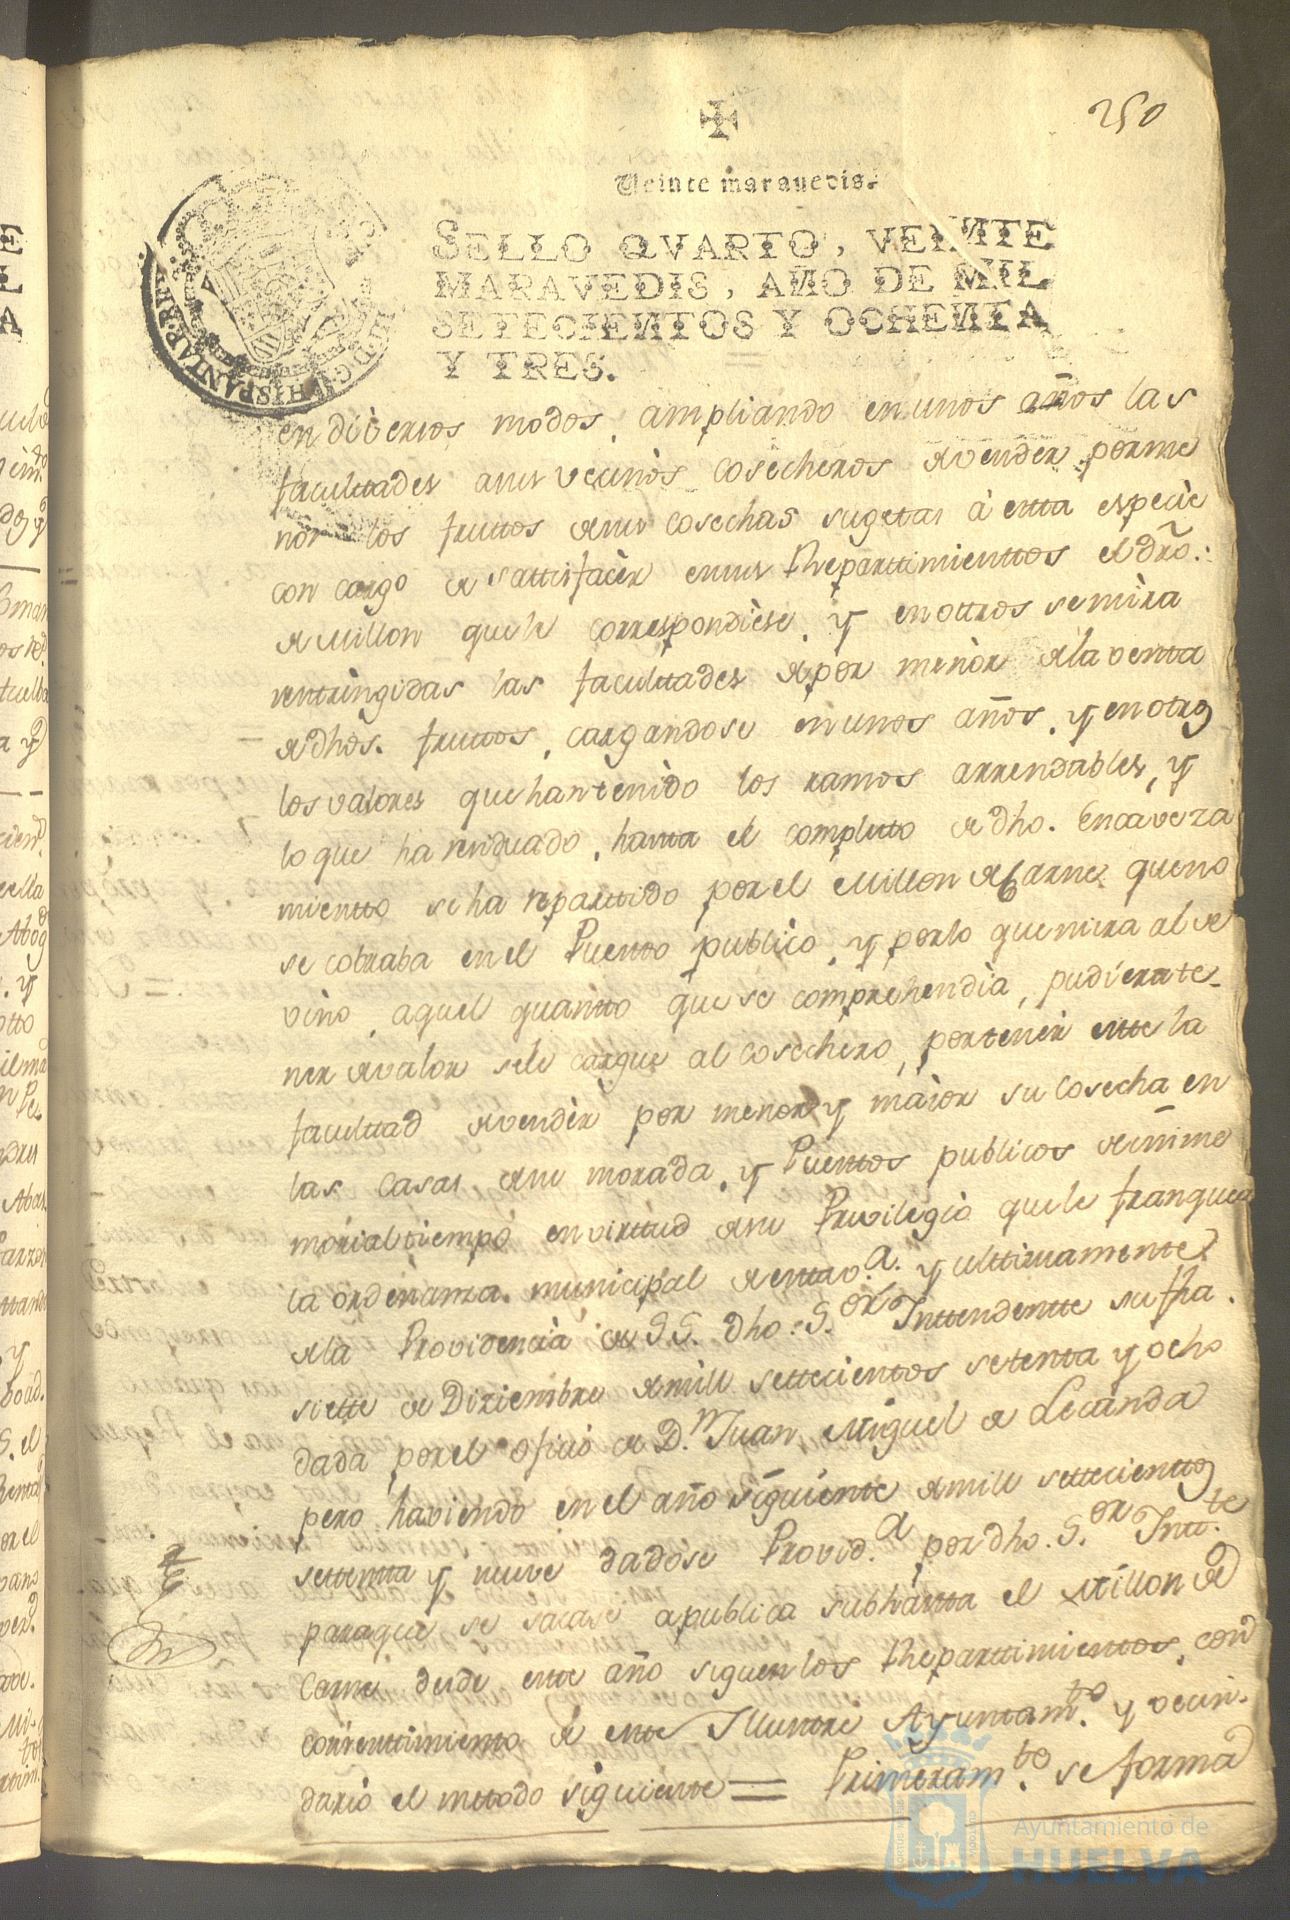 250
Veinte maravedis.
SELLO QVARTO, VEINTE
MARAVEDIS, AÑO DE MIL
SETECIENTOS Y OCHENTA
Y TRES.
en diversos modos, ampliando en unos años las
facultades a sus vecinos cosecheros de vender por me
nor los fruttos de sus cosechas sugetas à esta especie
con cargo de sattisfacer en sus Repartimienttos el dro.
de Millon que le correspondiese, y en ottros se mira
restringidas las facultades de por menòr de la venta
de dhos. fruttos, cargandose en unos años, y en otros
los valores que han tenido los ramos arrendables, y
lo que ha residuado, hasta el completto de dho. Encaveza
mientto se ha repartido por el Millon de Carne que no
se cobraba en el Puesto publico, y por lo que mira al de
vino, aquel quanto que se comprehendia, pudiera te-
ner de valor se le cargue al cosechero, por tener este la
facultad de vender por menor y maior su cosecha en
las casas de su morada, y Puestos publicos de inme
morial tiempo en virtud de su Privilegio que le franquea
la ordenanza municipal de esta v.a y ulttimamente
de la Providencia de SS. dho. S.or Inttendentte su fha.
siette de Diziembre de mill settecientos setenta y ocho
dada por el oficio de D.n Juan Miguel de Lecanda
pero haviendo en el año siguiente de mill settecienttos
settenta y nueve dadose Provid.a por dho. S.or Intt.te
para que se sacase a publica subhasta el Millon de
Carne, desde este año siguen los Repartimientos, con
consenttimiento de este Illustre Ayuntam.to y vecin-
dario el mettodo siguiente = Primeram.te se forma
Ayuntamiento de
HUELVA